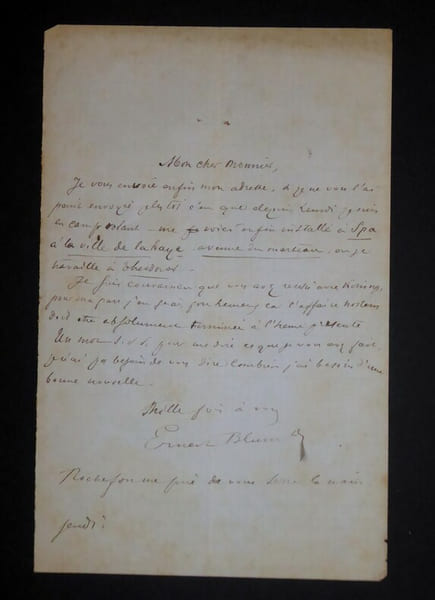 Mon cher Monnier,
Je vous envoie enfin mon adresse, si je ne vous l'ai
point envoyé plus tôt c'est que depuis Lundi je suis
en camp volant – me voici enfin installé à Spa
à la ville de la haye, avenue du marteau, où je
travaille à
Je suis convaincu que vous avez reussi avec Koning,
pour ma part j'en serai
doit être absolument terminée à l'heure présente
Un mot s.v.p. pour me dire ce que vous avez fait
je n'ai pas besoin de vous dire combien j'ai besoin d'une
bonne nouvelle.
Mille fois à vous
Ernest Blum
Rochefort me prie de vous serrer la main
jeudi